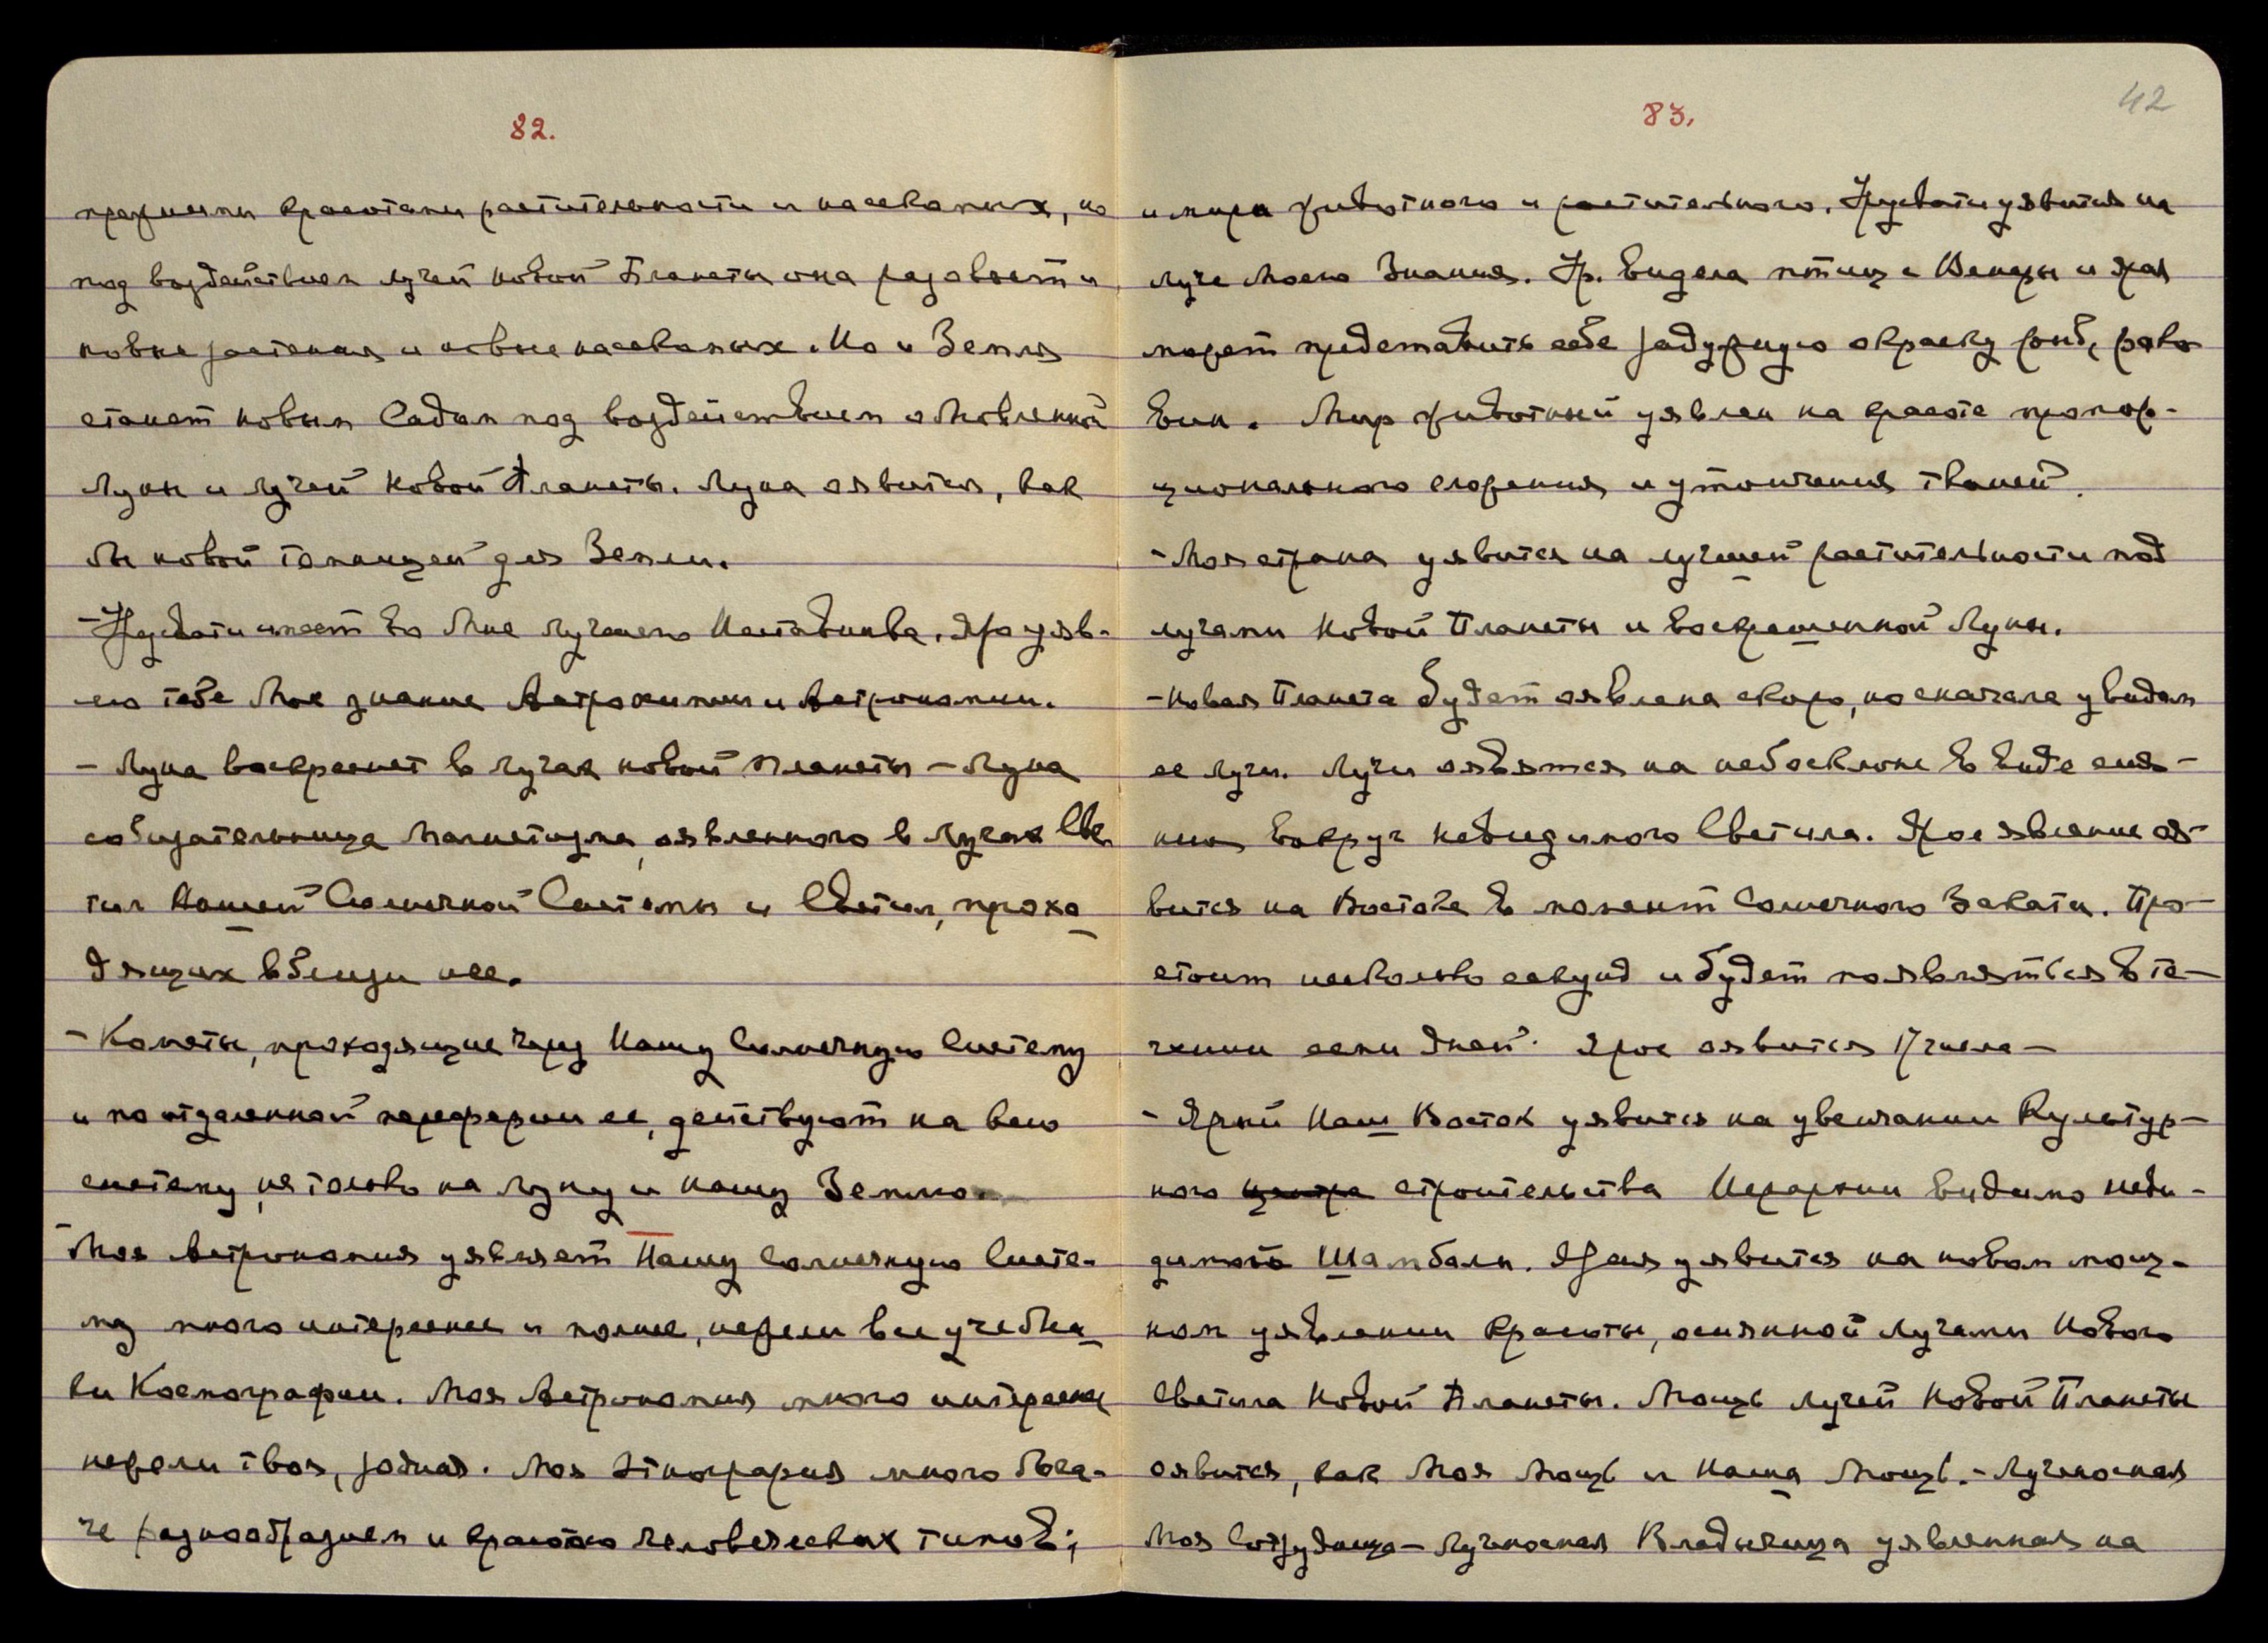 82.
прежними красотами растительности и насекомых, но
под воздействием лучей новой Планеты она разовьет и
новые растения и новые насекомых. Но и Земля
станет новым Садом под воздействием обновленной
Луны и лучей Новой Планеты. Луна оявится, как
бы новой танцей для Земли.
- Урусвати имеет во Мне лучшего Наставника. Яро уяв-
лю тебе Мое знание Астрохимии и Астрономии.
- Луна воскреснет в лучах новой Планеты - Луна
собирательница Магнетизма, оявленного в Лучах Све
тил Нашей Солнечной Системы и Светил, прохо
дящих вблизи нее.
- Кометы, проходящие через Нашу Солнечную Систему
и по отдаленной периферии ее, действуют на всю
систему, не только на Луну и нашу Землю.
- Моя Астрономия уявляет Нашу Солнечную Систе-
му много интереснее и полнее, нежели все учебни
ки Космографии. Моя Астрономия много интереснее
нежели твоя, родная. Моя Этнография много бога-
че разнообразием и красотою человеческих типов;
83.
42
и мира животного и растительного. Урусвати уявится на
луче Моего Знания. Ур. видела птиц с Венеры и яро
может представить себе радужную окраску рыб, рако
вин. Мир животный уявлен на красоте пропор-
ционального сложения и утончения тканей.
- Моя страна уявится на лучшей растительности под
лучами Новой Планеты и воскрешенной Луны.
- Новая Планета будет оявлена скоро, но сначала увидят
ее лучи. Лучи оявятся на небосклоне в виде сия-
ния вокруг невидимого Светила. Ярое явление оя-
вится на Востоке в момент Солнечного Заката. Про-
стоит несколько секунд и будет появляться в те-
чении семи дней. Ярое оявится 17 числа -
- Ярый Наш Восток уявится на увенчании Культур-
ного центра строительства Иерархии видимо неви-
димой Шамбалы. Яро уявится на новом мощ-
ном уявлении Красоты, осиянной лучами Нового
Светила Новой Планеты. Мощь лучей Новой Планеты
оявится, как Моя Мощь и Наша Мощь. - Лученосная
Моя Сотрудница - Лученосная Владычица уявленная на